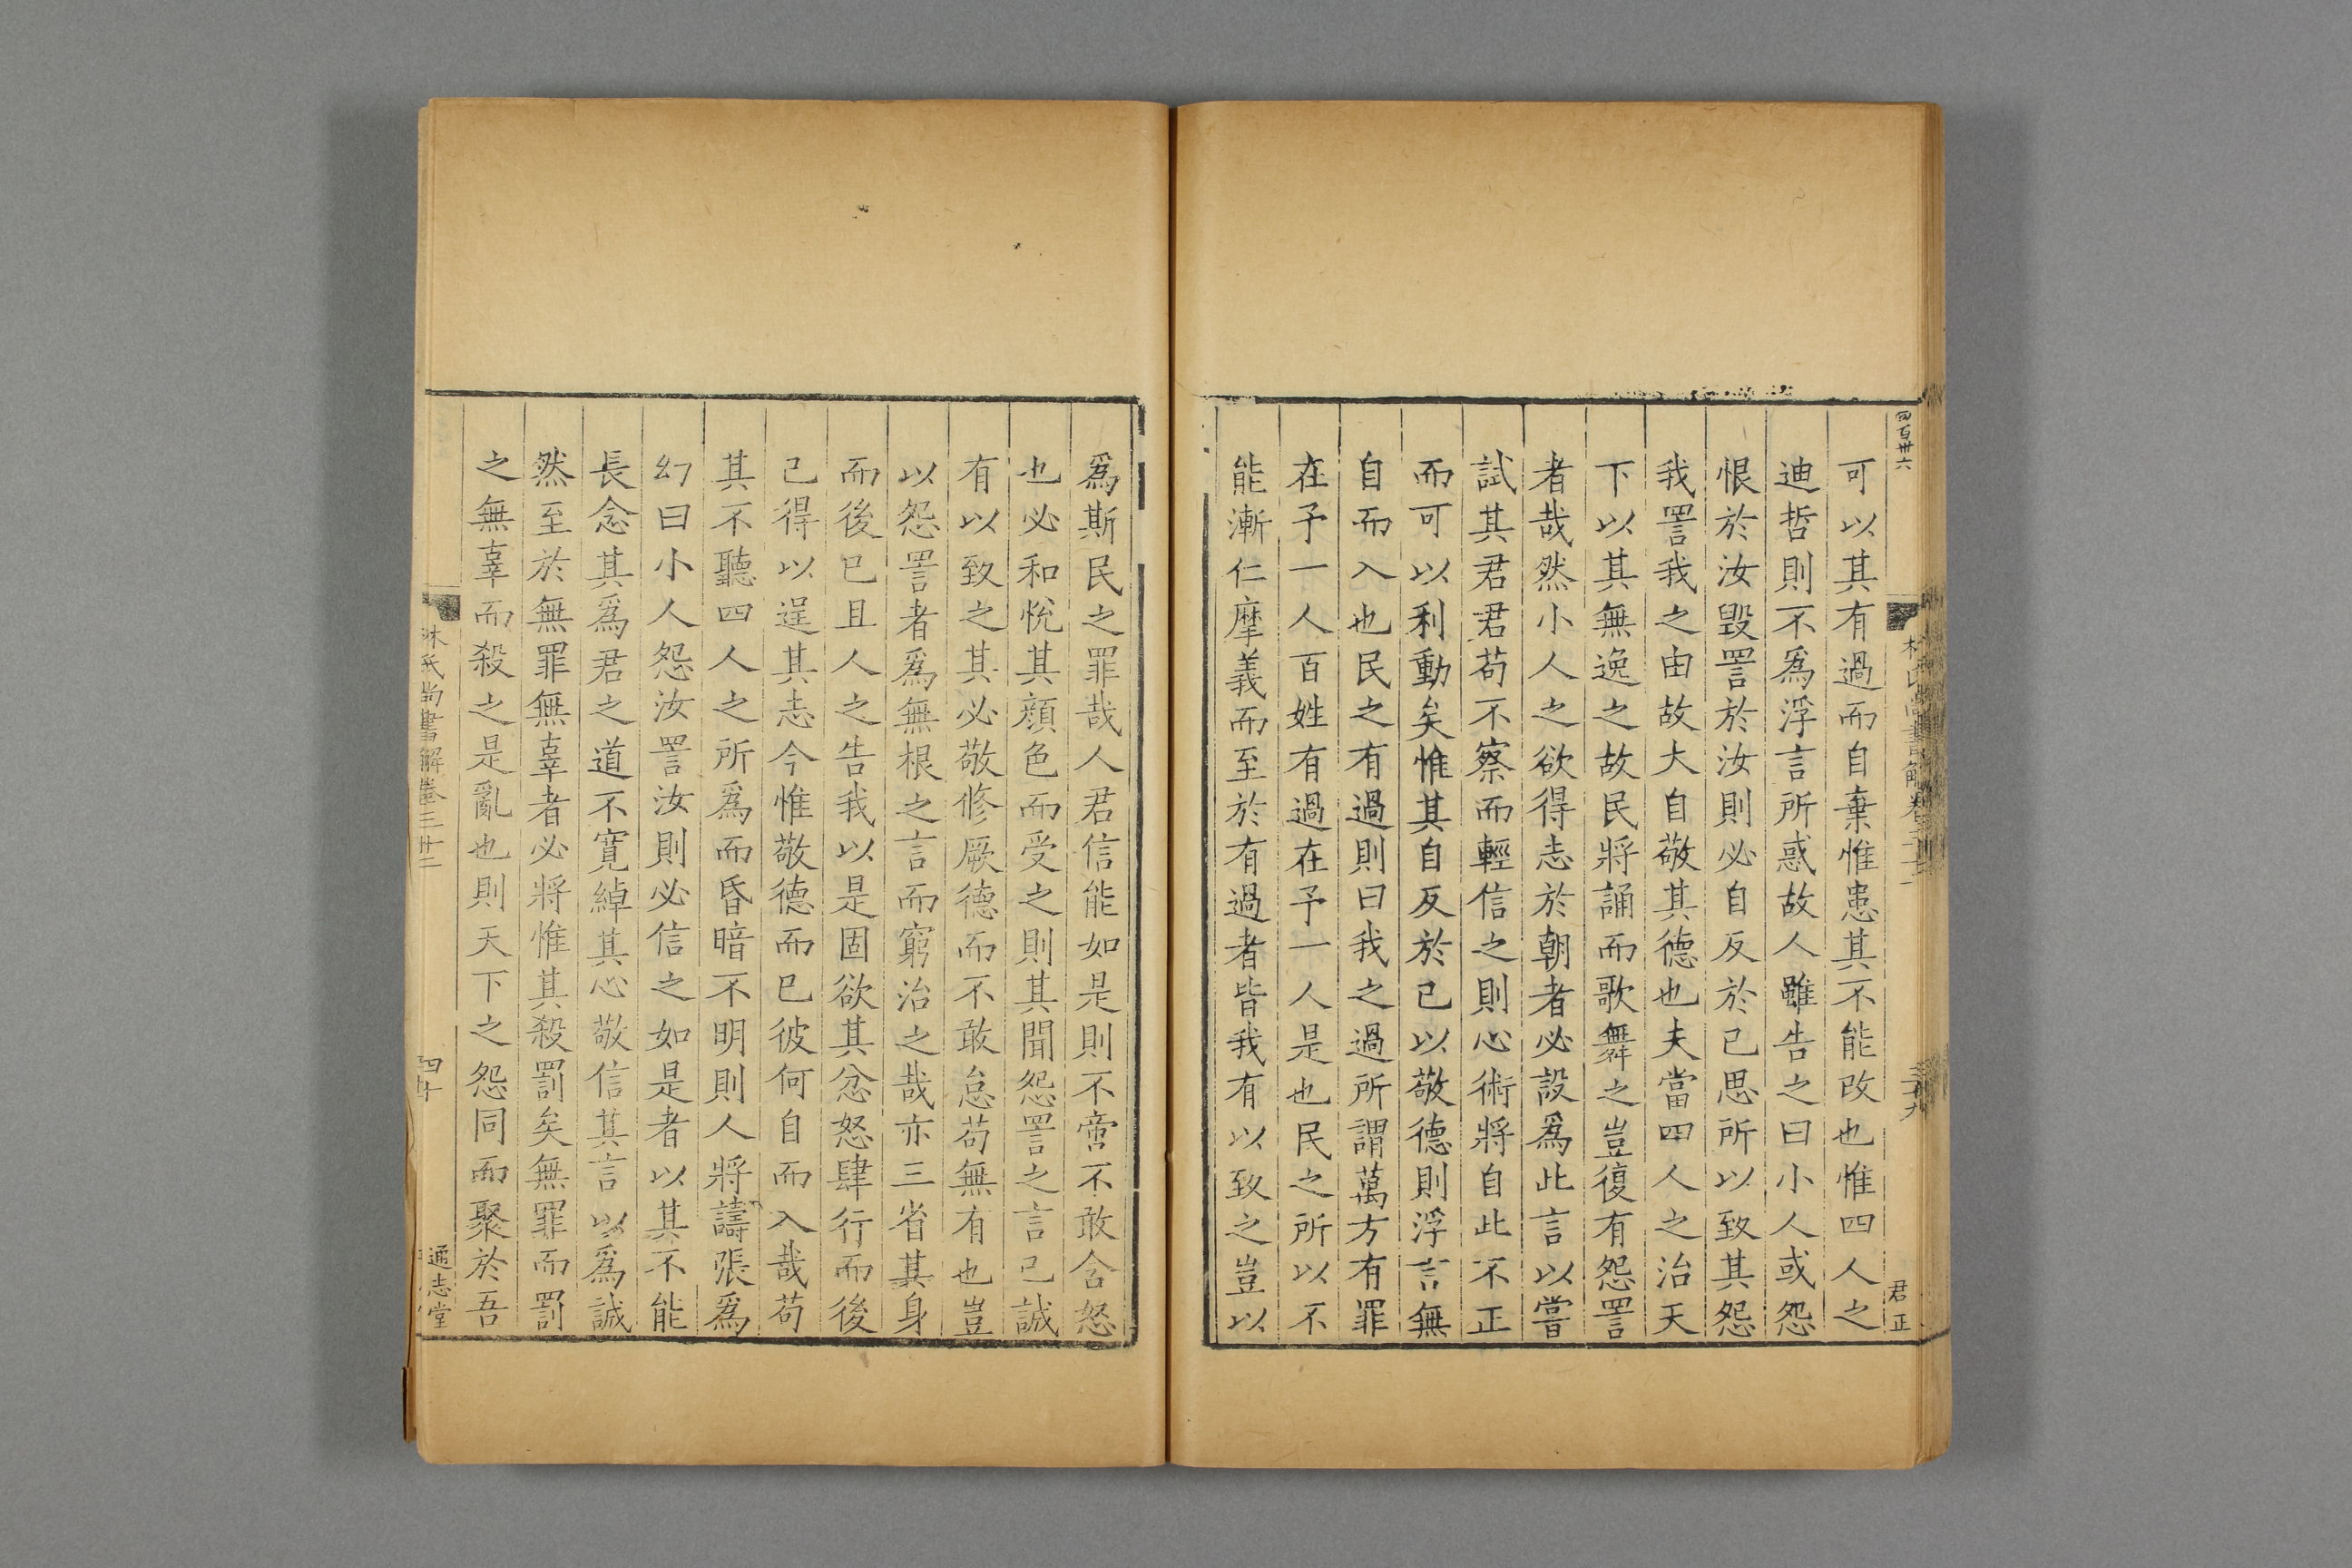 四百卅六
君正
可以其有過而自棄惟患其不能改也惟四人之
迪哲則不爲浮言所惑故人雖告之曰小人或怨
恨於汝毀詈於汝則必自反於己思所以致其怨
我詈我之由故大自敬其德也夫當四人之治天
下以其無逸之故民將誦而歌舞之豈復有怨詈
者哉然小人之欲得志於朝者必設爲此言以嘗
試其君君苟不察而輕信之則心術將自此不正
而可以利動矣惟其自反於己以敬德則浮言無
自而入也民之有過則曰我之過所謂萬方有罪
在予一人百姓有過在予一人是也民之所以不
能漸仁摩義而至於有過者皆我有以致之豈以
爲斯民之罪哉人君信能如是則不啻不敢含怒
也必和悅其顏色而受之則其聞怨詈之言已誠
有以致之其必敬修厥德而不敢怠苟無有也豈
以怨詈者爲無根之言而窮治之哉亦三省其身
而後已且人之告我以是固欲其忿怒肆行而後
已得以逞其志今惟敬德而已彼何自而入哉苟
其不聽四人之所爲而昏暗不明則人將譸張爲
幻曰小人怨汝詈汝則必信之如是者以其不能
長念其爲君之道不寬綽其心敬信其言以爲誠
然至於無罪無辜者必將惟其殺罰矣無罪而罰
之無辜而殺之是亂也則天下之怨同而聚於吾
林氏尚書解卷三十二
四十
通志堂